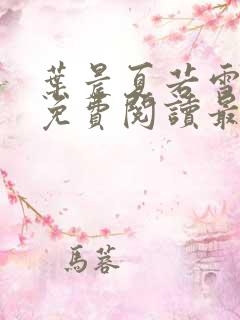 葉辰夏若雪
免費閱讀最
馬蓉